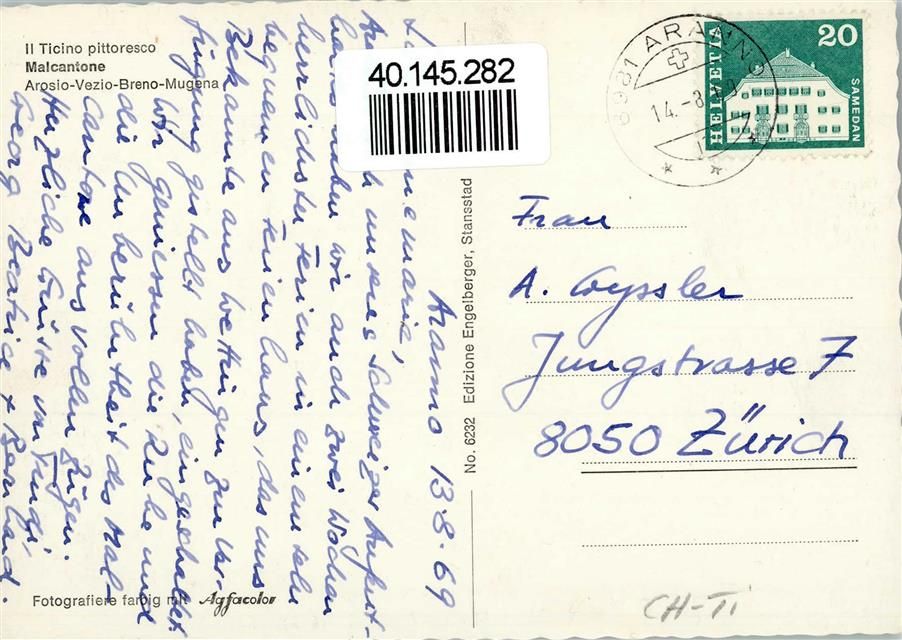 Il Ticino pittoresco
Malcantone
Arosio-Vezio-Breno-Mugena
40.145.282
6981 ARANNO
14.-8.
HELVETIA
20
SAMEDAN
Aranno 13.8.69
marie,
unseres Schweizer Aufent-
haltes haben wir auch zwei Wochen
herrlichster Ferien in einem sehr
bequemen Ferienhaus, das uns
Bekannte aus Wettingen zur Ver-
fügung gestellt haben, eingeschaltet
Wir geniessen die Ruhe und
die Unberührtheit des Mal-
Cantone aus vollen Zügen.
Herzliche Grüsse von
Georg Beatrice + Bernhard.
No. 6232 Edizione Engelberger, Stansstad
Frau
A. Wyssler
Jungstrasse 7
8050 Zürich
Fotografiere farbig mit Agfacolor
CH-Ti